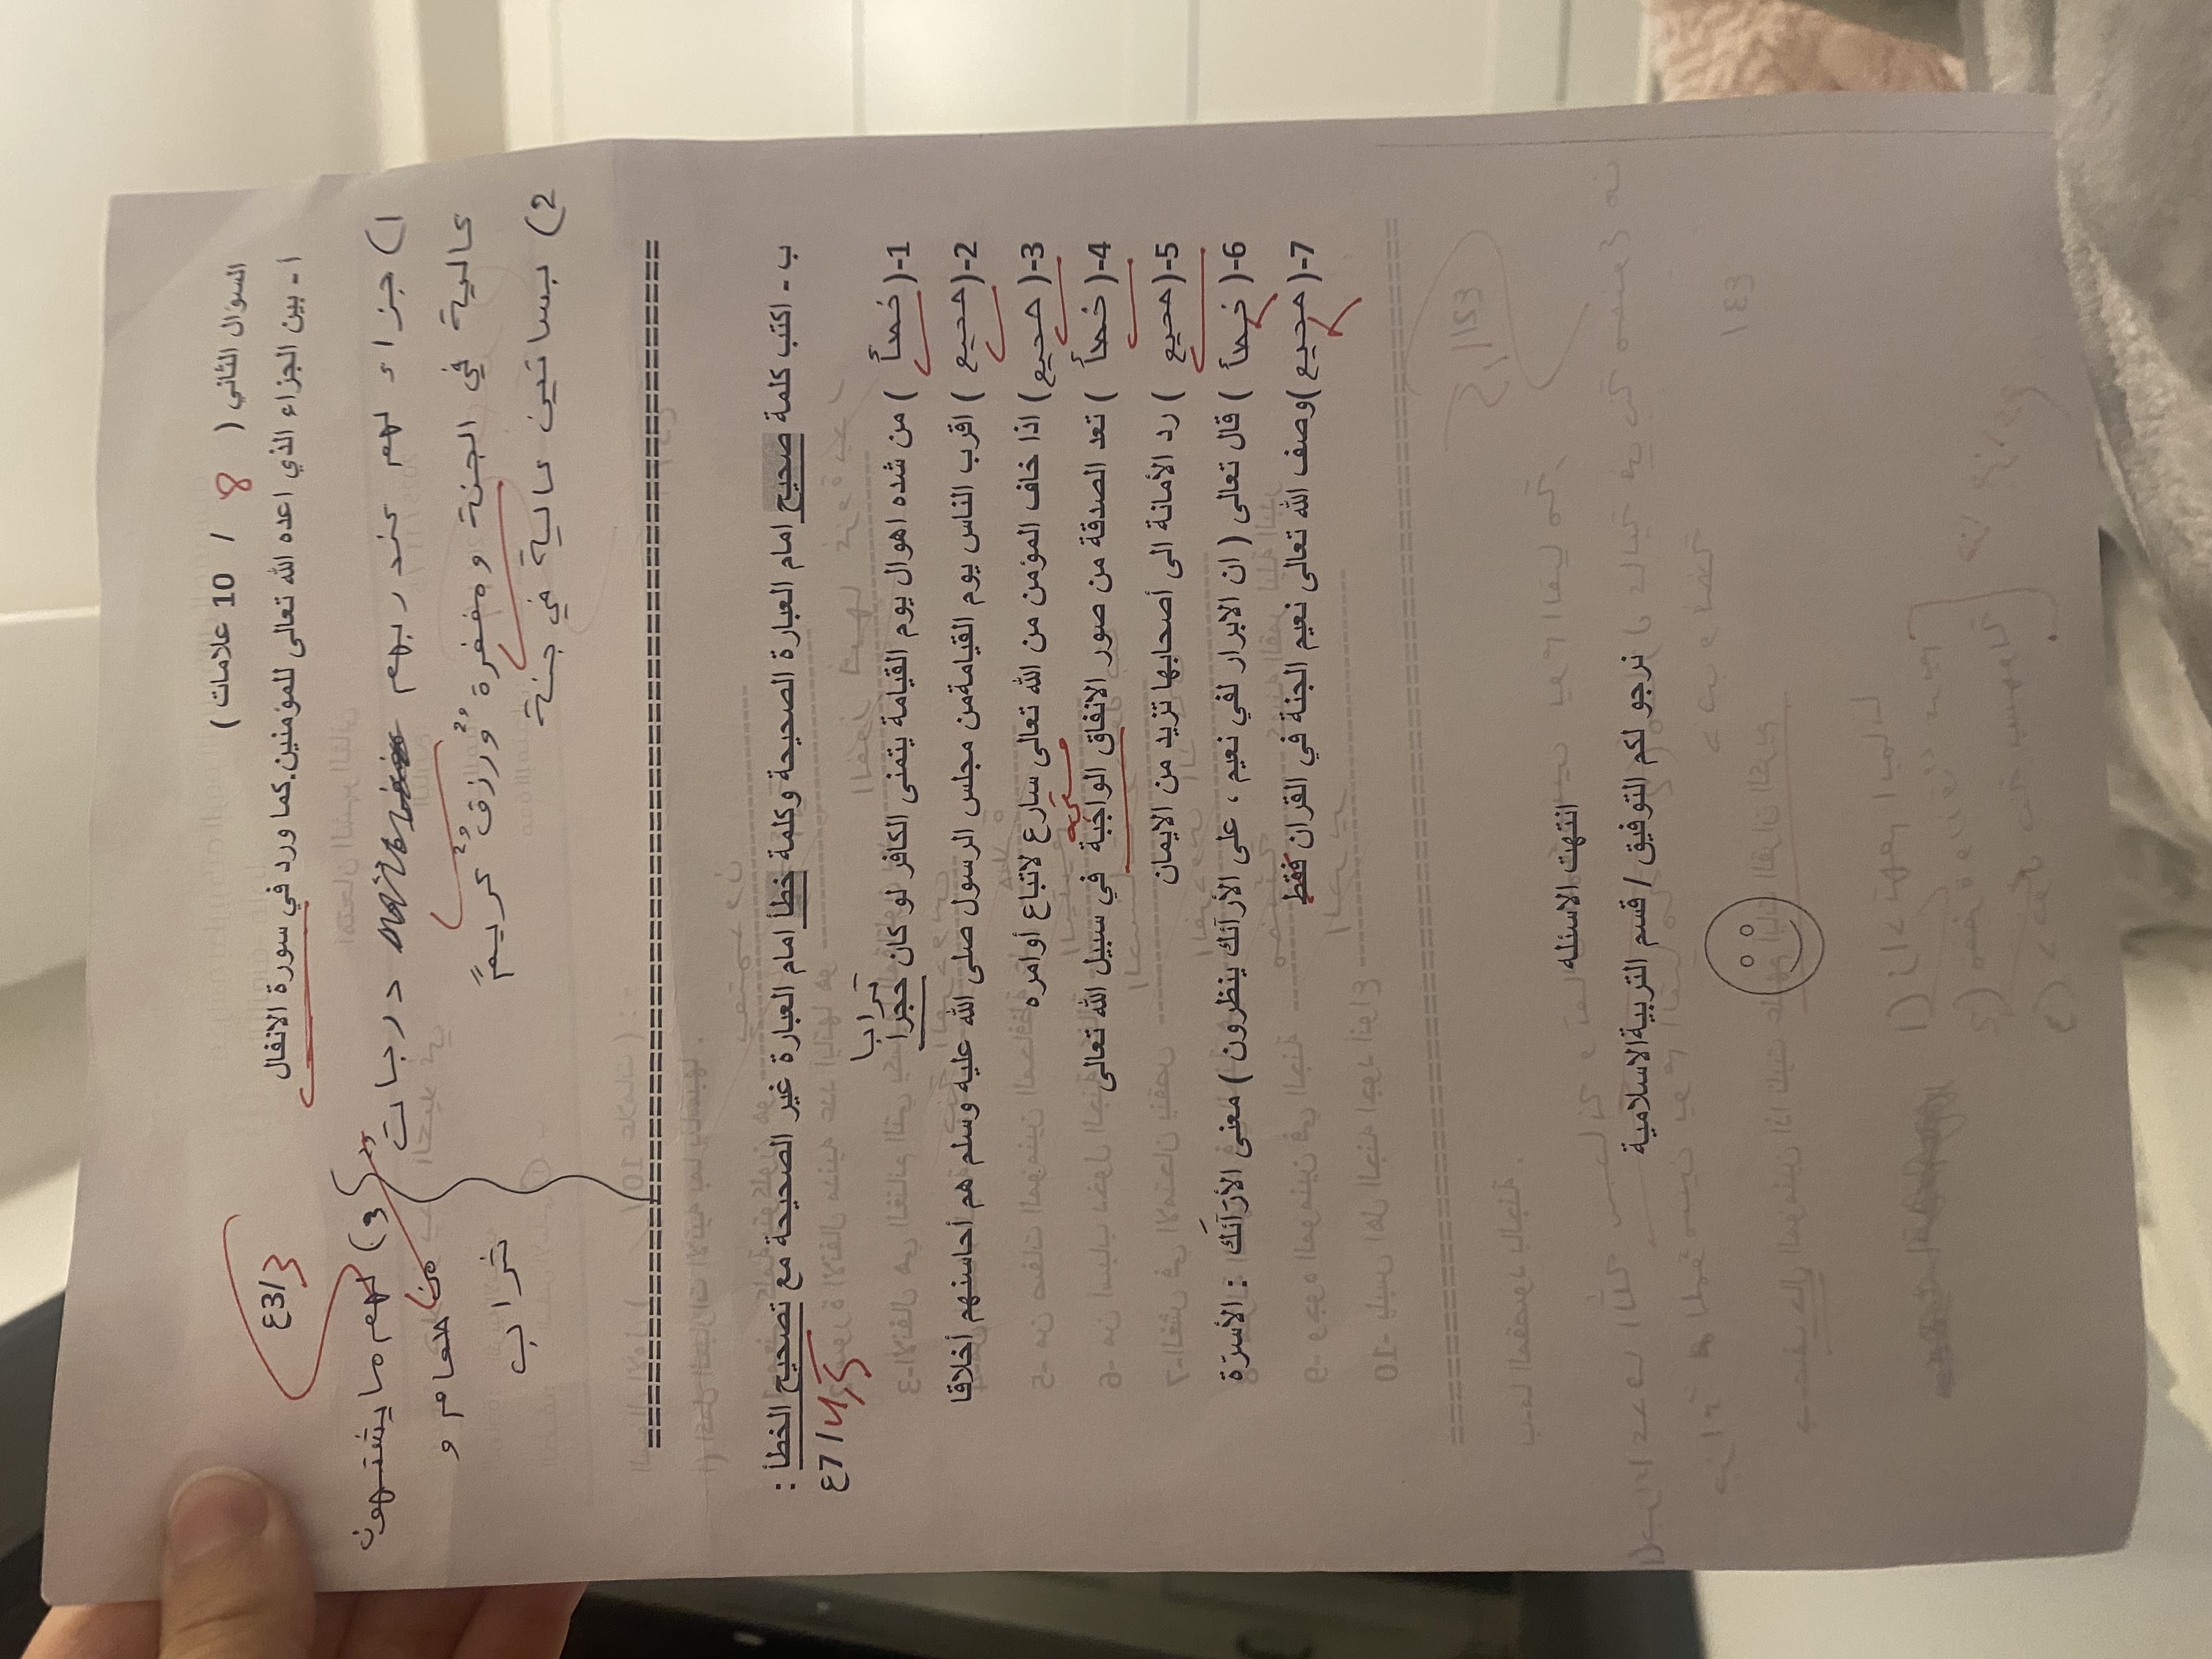 السوال الثاني ( 8 / 10 علامات )
ا - بين الجزاء الذي اعده الله تعالى للمؤمنين.كما ورد في سورة الانفال
ع3/3
1) جزاء لهم عند ربهم درجات
عالية في الجنة و مغفرة ورزق كريم
2) بساتين عالية في جنة
3) لهم ما يشتهون
من طعام و
شراب
==========================================
ب - اكتب كلمة صحيح امام العبارة الصحيحة وكلمة خطأ امام العبارة غير الصحيحة مع تصحيح الخطأ :
ع7/4,5
ترابا
1-(خطأ ) من شده اهوال يوم القيامة يتمنى الكافر لو كان حجرا
2-(صحيح ) اقرب الناس يوم القيامةمن مجلس الرسول صلى الله عليه وسلم هم أحاسنهم أخلاقا
3-(صحيح ) اذا خاف المؤمن من الله تعالى سارع لاتباع أوامره
4-(خطأ ) تعد الصدقة من صور الانفاق الواجبة في سبيل الله تعالى
5-(صحيح ) رد الأمانة الى أصحابها تزيد من الايمان
6-(خطأ ) قال تعالى ( ان الابرار لفي نعيم ، على الأرآئك ينظرون ) معنى الأرَآئك : الأسرّة
7-(صحيح )وصف الله تعالى نعيم الجنة في القران فقط
انتهت الاسئله
نرجو لكم التوفيق / قسم التربيةالاسلامية